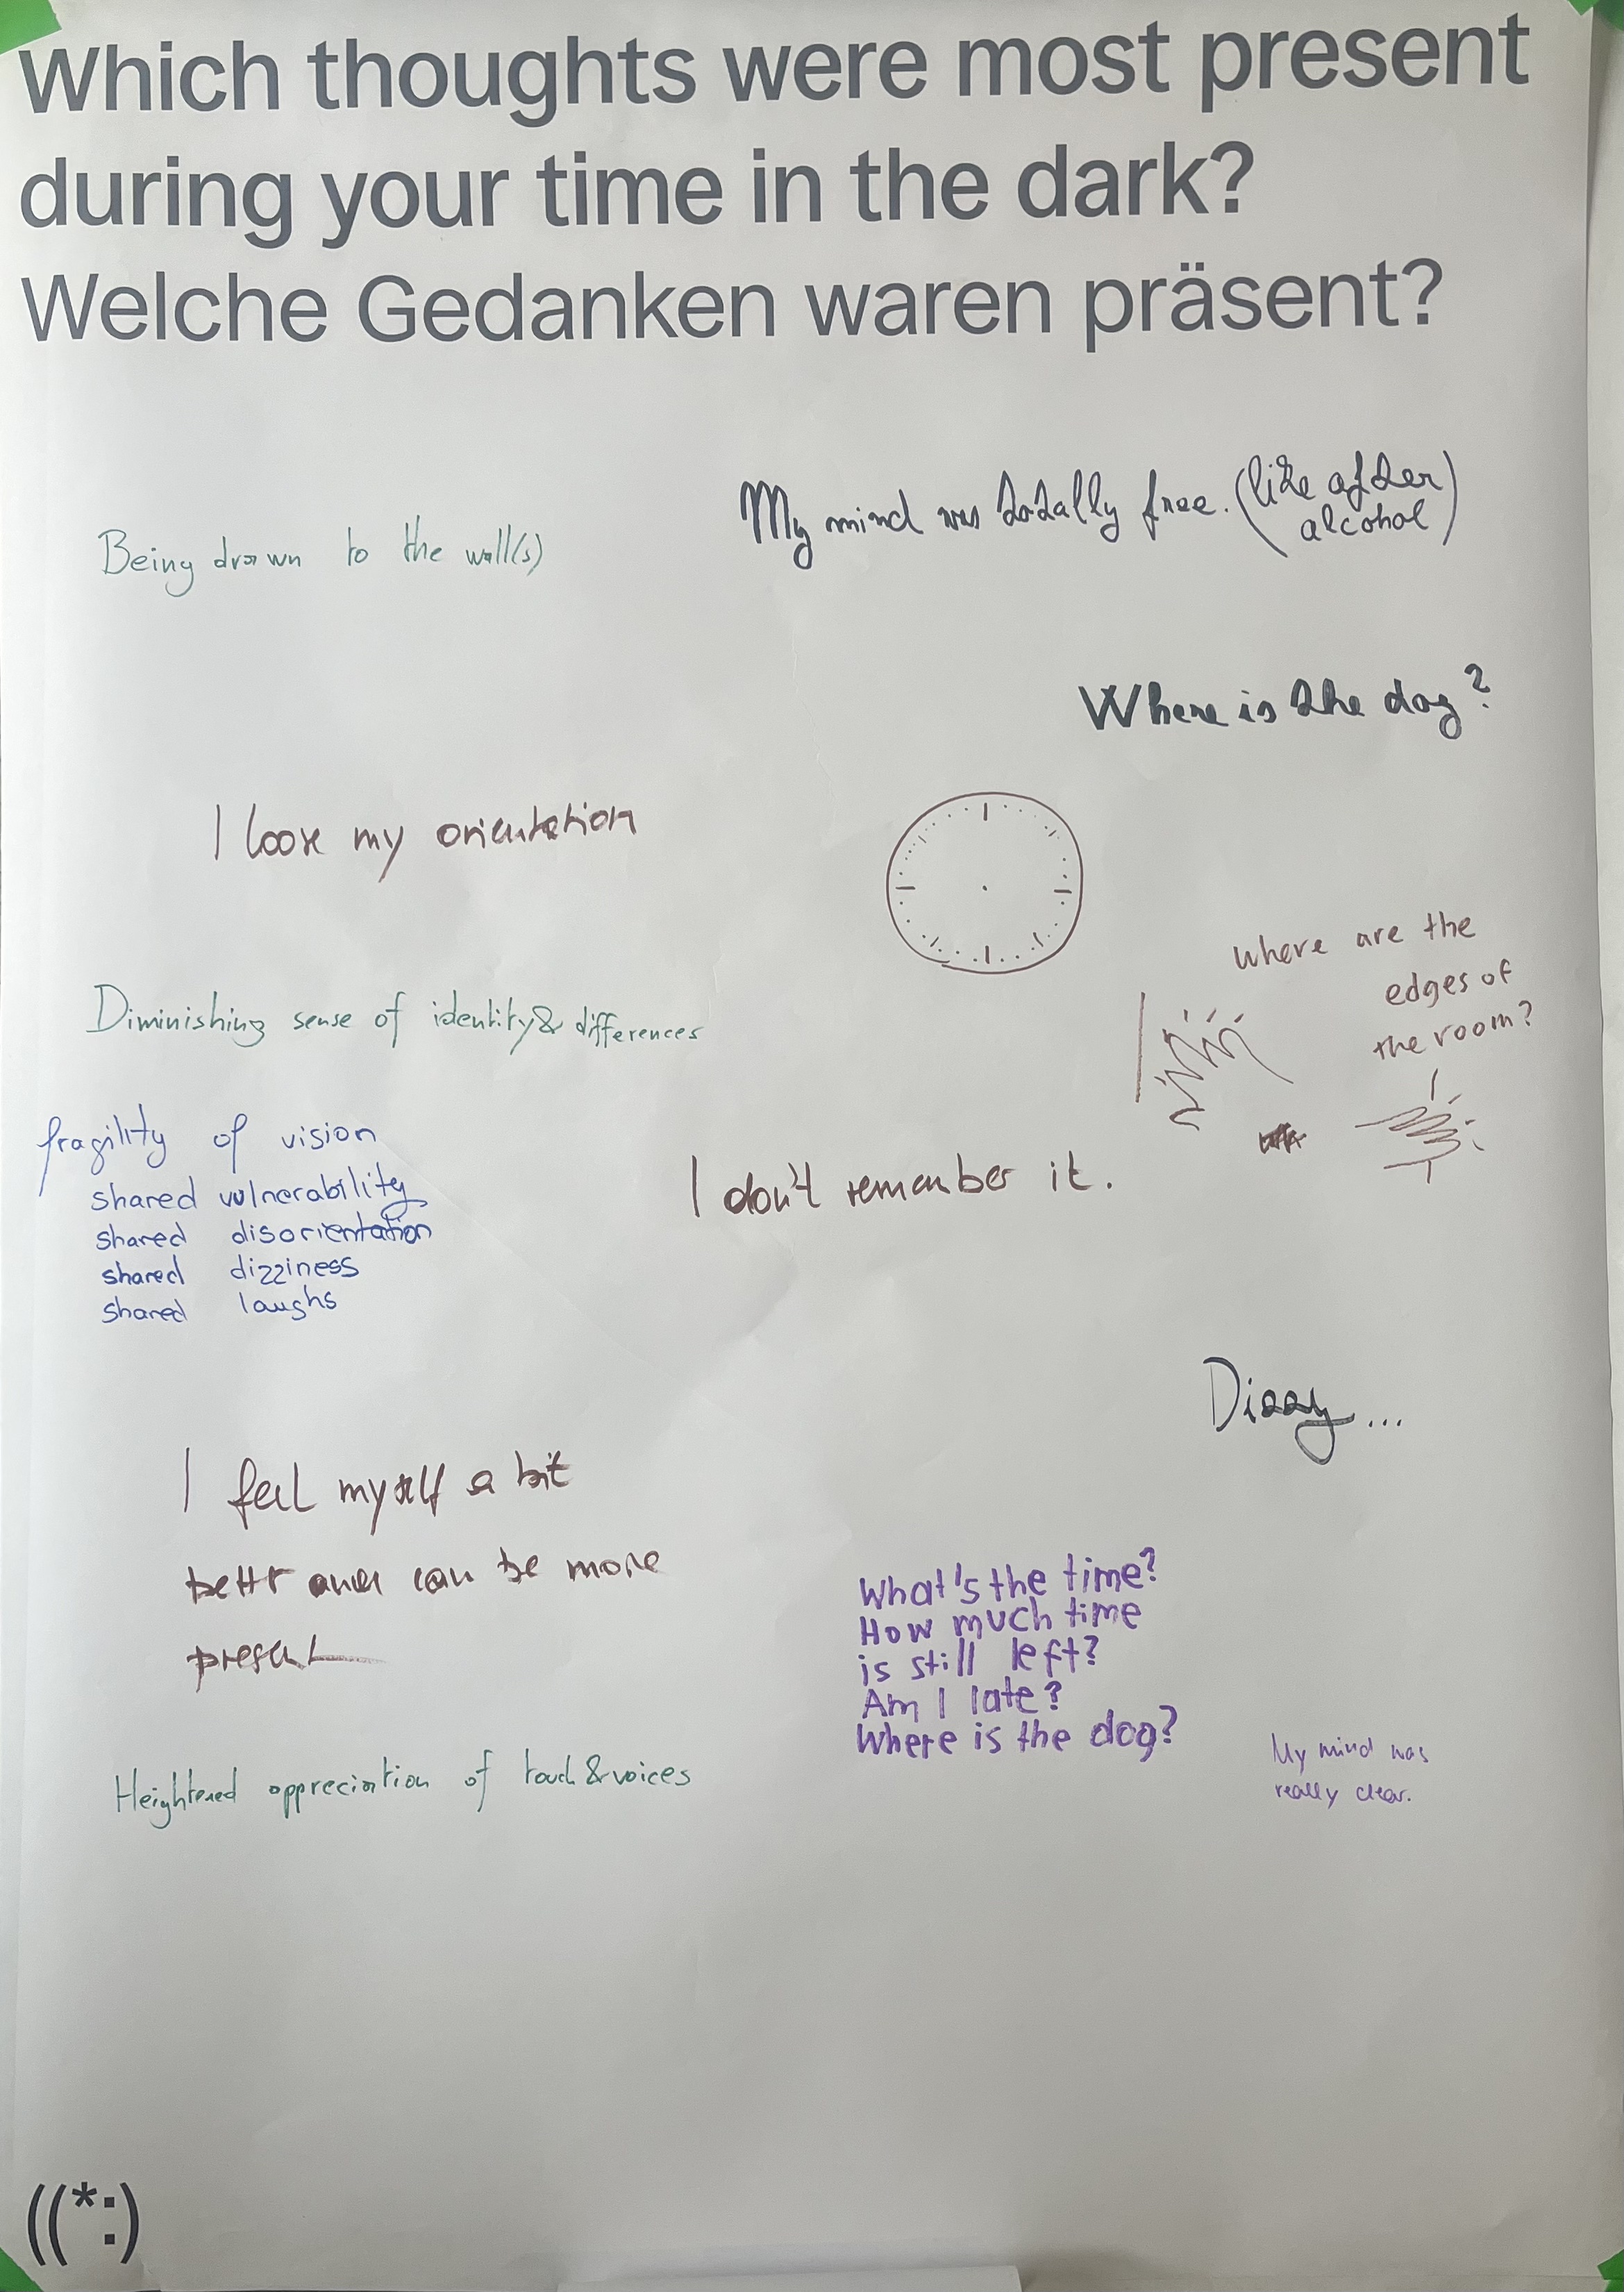 Which thoughts were most present
during your time in the dark?
Welche Gedanken waren präsent?
My mind was totally free. (like after
alcohol)
Being drawn to the wall(s)
Where is the dog?
I loose my orientation
where are the
edges of
the room?
Diminishing sense of identity & differences
fragility of vision
shared vulnerability
shared disorientation
shared dizziness
shared laughs
I don't remember it.
Dizzy...
I feel myself a bit
bettr and can be more
present
What's the time?
How much time
is still left?
Am I late?
Where is the dog?
My mind was
really clear.
Heightened appreciation of touch & voices
((*:)